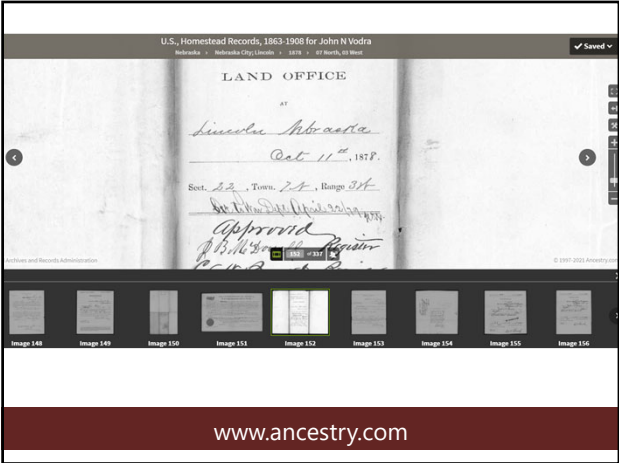 U.S., Homestead Records, 1863-1908 for John N Vodra
Nebraska > Nebraska City; Lincoln > 1878 > 07 North, 03 West
✔ Saved
LAND OFFICE
AT
Lincoln Nebraska
Oct 11th, 1878.
Sect. 22, Town. 7 N, Range 3 W
April 22/79
Approved
Register
152 of 337
Archives and Records Administration
© 1997-2021 Ancestry.com
Image 148
Image 149
Image 150
Image 151
Image 152
Image 153
Image 154
Image 155
Image 156
www.ancestry.com